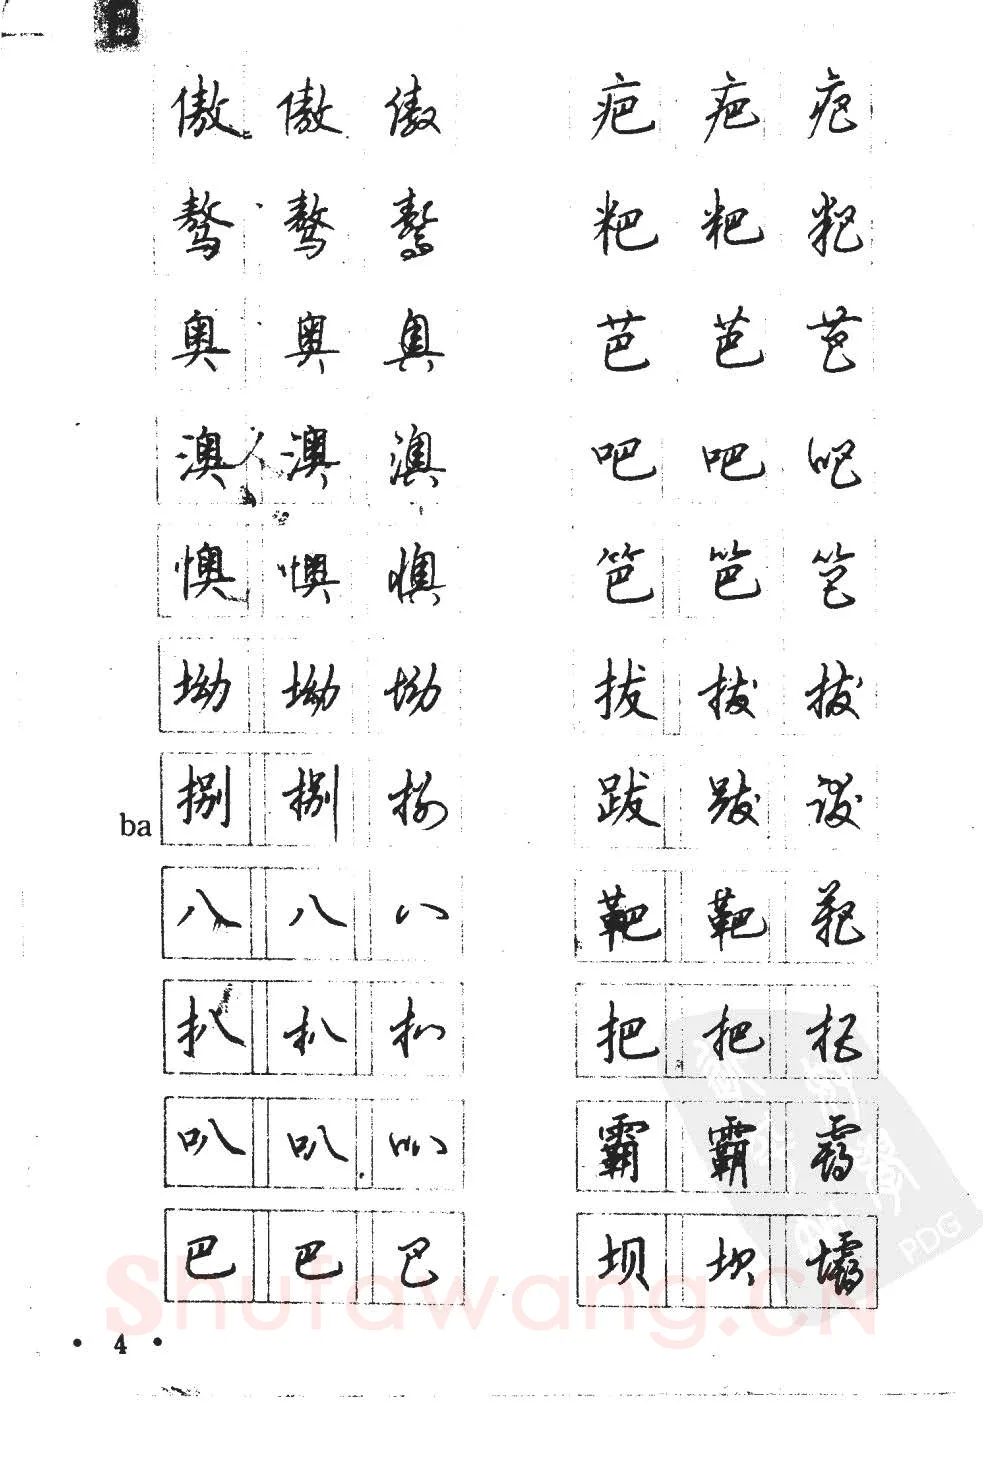 B
傲 傲 傲
骜 骜 骜
奥 奥 奥
澳 澳 澳
懊 懊 懊
坳 坳 坳
ba 捌 捌 捌
八 八 八
扒 扒 扒
叭 叭 叭
巴 巴 巴
疤 疤 疤
粑 粑 粑
芭 芭 芭
吧 吧 吧
笆 笆 笆
拔 拔 拔
跋 跋 跋
靶 靶 靶
把 把 把
霸 霸 霸
坝 坝 壩
• 4 •
shufawang.CN
PDG